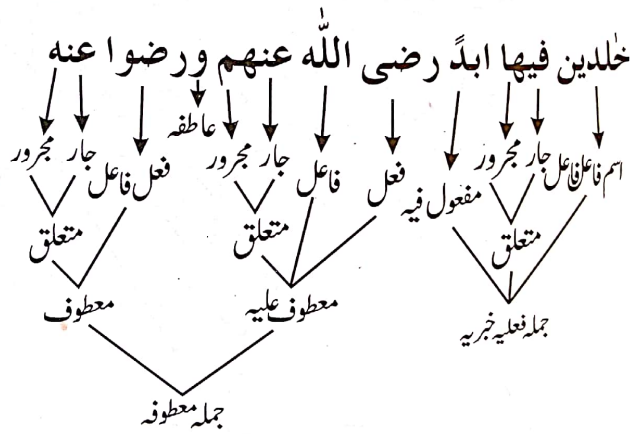 خٰلدین فیھا ابدً رضی اللّٰه عنھم ورضوا عنه
اسم فاعل فاعل جار مجرور مفعول فیه فعل فاعل جار مجرور عاطفه فعل فاعل جار مجرور
متعلق متعلق متعلق
جمله فعلیه خبریه معطوف علیه معطوف
جمله معطوفه